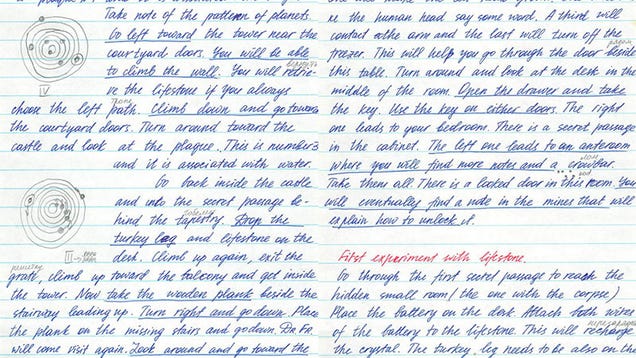 Take note of the pattern of planets.
Go left toward the tower near the
courtyard doors. You will be able
to climb the wall. You will retrie-
IV
ve the lifestone if you always
choose the left path. Climb down and go towards
the courtyard doors. Turn around toward the
castle and look at the plaque. This is number 3
and it is associated with water.
Go back inside the castle
and into the secret passage be-
hind the tapestry. Drop the
turkey leg and lifestone on the
III
desk. Climb up again, exit the
grate, climb up toward the balcony and get inside
the tower. Now take the wooden plank beside the
stairway leading up. Turn right and go down. Place
the plank on the missing stairs and go down.
will come visit again. Look around and go toward the
re the human head say some word. A think will
contact the arm and the last will turn off the
freezer. This will help you go through the door beside
this table. Turn around and look at the desk in the
middle of the room. Open the drawer and take
the key. Use the key on either doors. The right
one leads to your bedroom. There is a secret passage
in the cabinet. The left one leads to an anteroom
where you will find more notes and a crowbar.
Take them all. There is a locked door in this room. You
will eventually find a note in the mines that will
explain how to unlock it.
First experiment with lifestone.
Go through the first secret passage to reach the
hidden small room (the one with the corpse)
Place the battery on the desk. Attach both wires
of the battery to the lifestone. This will recharge
the crystal. The turkey leg needs to be also on the